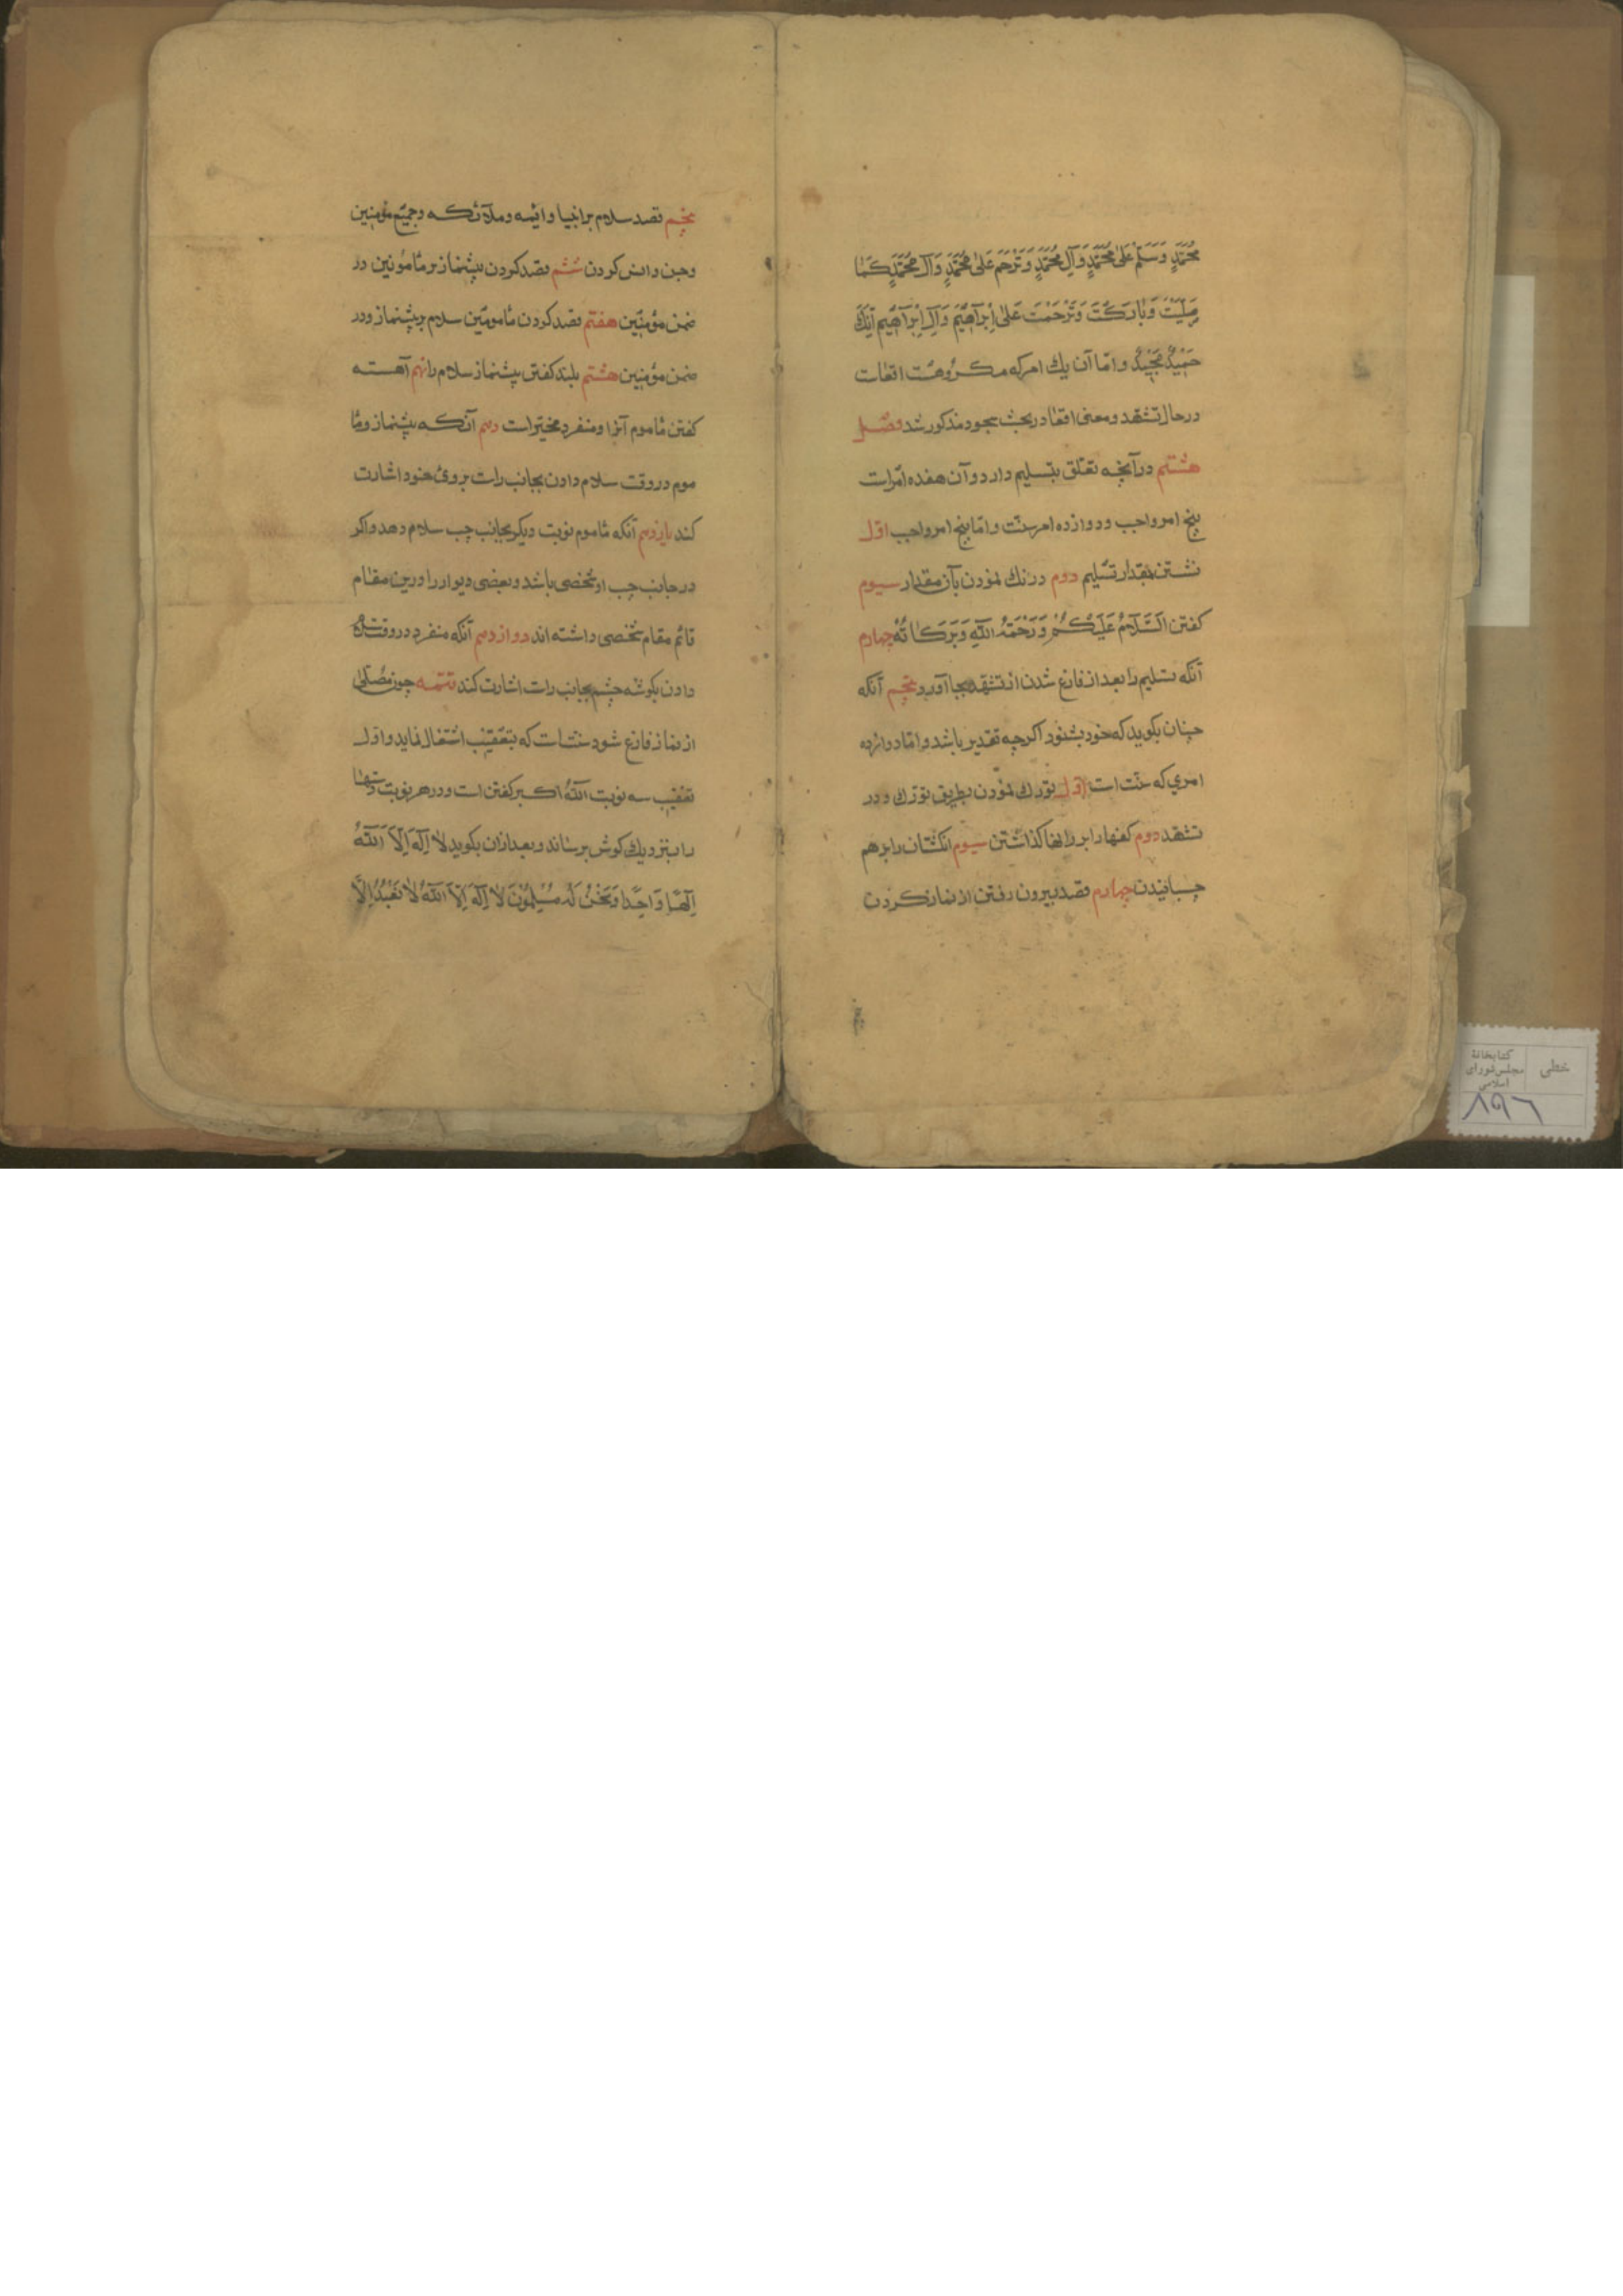 مُحَمَّدٍ وَسَلِّمْ عَلٰی مُحَمَّدٍ وَآلِ مُحَمَّدٍ وَتَرَحَّمْ عَلٰی مُحَمَّدٍ وَآلِ مُحَمَّدٍ كَمٰا
صَلَّيْتَ وَبٰارَكْتَ وَتَرَحَّمْتَ عَلٰی اِبْرٰاهٖيمَ وَآلِ اِبْرٰاهٖيمَ اِنَّكَ
حَمٖيدٌ مَجٖيدٌ واما آن یك امر که مکروهست اقعات
درحال تشهد ومعنی اقعا در بحث سجود مذکور شد فصل
هشتم در آنچه تعلق بتسلیم دارد و آن هفده امراست
پنج امر واجب ودوازده امر سنّت وامّا پنج امر واجب اوّل
نشستن بمقدار تسلیم دوم درنك نمودن بآن مقدار سیوم
کفتن اَلسَّلٰامُ عَلَيْكُمْ وَرَحْمَةُ اللّٰهِ وَبَرَكٰاتُهُ چهارم
آنکه تسلیم را بعد از فارغ شدن از تشهد بجا آورد پنجم آنکه
چنان بکوید که خود بشنود اکرچه تقدیر باشد وامّا دوازده
امری که سنّت است اوّل تورّك نمودن بطریق تورّك در
تشهّد دوم کفها را بر رانها کذاشتن سیوم انکشتان را برهم
چسبانیدن چهارم قصد بیرون رفتن از نماز کردن
پنجم قصد سلام بر انبیا و ائمه وملآئکه وجمیع مؤمنین
وجن وانس کردن ششم قصد کردن پیشنماز بر مأمومین در
ضمن مؤمنین هفتم قصد کردن مأمومین سلام بر پیشنماز ودر
ضمن مؤمنین هشتم بلند کفتن پیشنماز سلام را نهم آهسته
کفتن مأموم آنرا ومنفرد مخیّر است دهم آنکه پیشنماز ومأ
موم در وقت سلام دادن بجانب راست بروی خود اشارت
کند یازدهم آنکه مأموم نوبت دیکر بجانب چپ سلام دهد واکر
در جانب چپ او شخصی باشد وبعضی دیوار را در این مقام
قائم مقام شخصی داشته اند دوازدهم آنکه منفرد در وقت سلام
دادن بکوشه چشم بجانب راست اشارت کند تتمه چون مصلّی
از نماز فارغ شود سنّتست که بتعقیب اشتغال نماید واوّل
تعقیب سه نوبت اللّٰهُ اکبر کفتن است ودر هر نوبت دستها
را بنزدیك کوش برساند وبعد ازان بکوید لٰا اِلٰهَ اِلَّا اللّٰهُ
اِلٰهًا وٰاحِدًا وَنَحْنُ لَهُ مُسْلِمُونَ لٰا اِلٰهَ اِلَّا اللّٰهُ لٰا نَعْبُدُ اِلَّا
خطی
کتابخانهٔ
مجلس شورای
اسلامی
۸۹۶